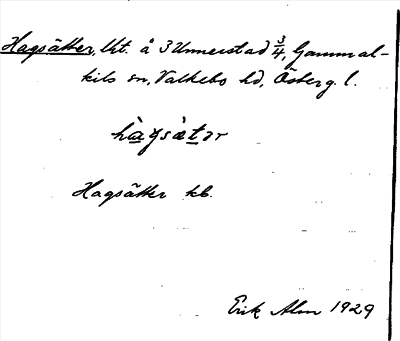 Hagsätter, lht. å 3 Unnerstad 3/4, Gammal-
kils sn, Valkebo hd, Österg. l.
hàgsàtər
Hagsätter kb.
Erik Alm 1929